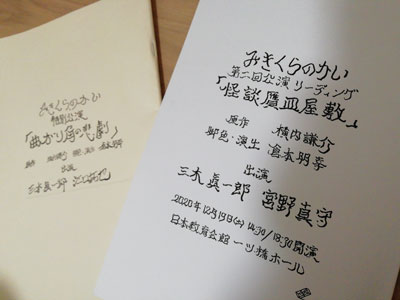 みきくらのかい
特別公演
「曲がり角の悲劇」
出演
三木眞一郎
みきくらのかい
第二回公演 リーディング
「怪談贋皿屋敷」
原作 横内謙介
脚色・演出 倉本朋幸
出演
三木眞一郎 宮野真守
2020年12月19日(土) 14:30/18:30開演
日本教育会館 一ツ橋ホール